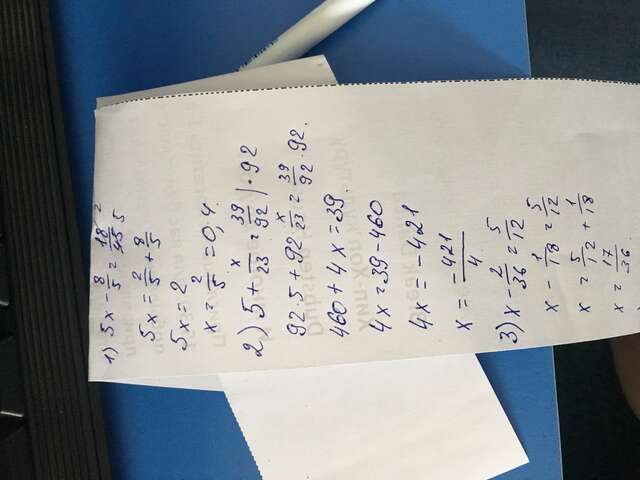 1) 5x - 8/5 = 18/45 2 5
5x = 2/5 + 8/5
5x = 2
x = 2/5 = 0,4.
2) 5 + x/23 = 39/92 | · 92
92 · 5 + 92 · x/23 = 39/92 · 92.
460 + 4x = 39.
4x = 39 - 460
4x = -421
x = -421/4
3) x - 2/36 = 5/12
x - 1/18 = 5/12
x = 5/12 + 1/18
x = 17/36.